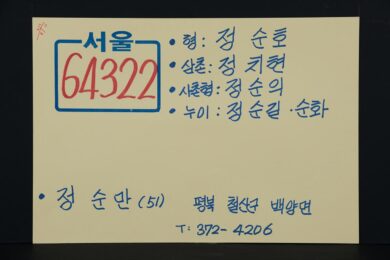 서울
64322
• 형: 정 순호
• 삼촌: 정 치현
• 사촌형: 정순의
• 누이: 정순길·순화
• 정 순만 (51) 평북 철산군 백양면
T: 372-4206